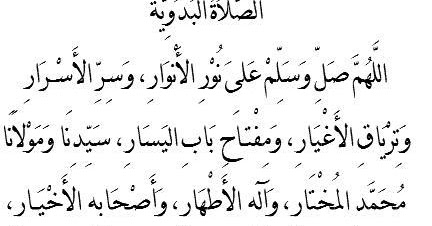 الصَّلَاةُ الْبَدَوِيَّة
اللَّهُمَّ صَلِّ وَسَلِّمْ عَلَى نُوْرِ الْأَنْوَارِ، وَسِرِّ الْأَسْرَارِ
وَتِرْيَاقِ الْأَغْيَارِ، وَمِفْتَاحِ بَابِ الْيَسَارِ، سَيِّدِنَا وَمَوْلَانَا
مُحَمَّدِ الْمُخْتَارِ، وَآلِهِ الْأَطْهَارِ، وَأَصْحَابِهِ الْأَخْيَارِ،